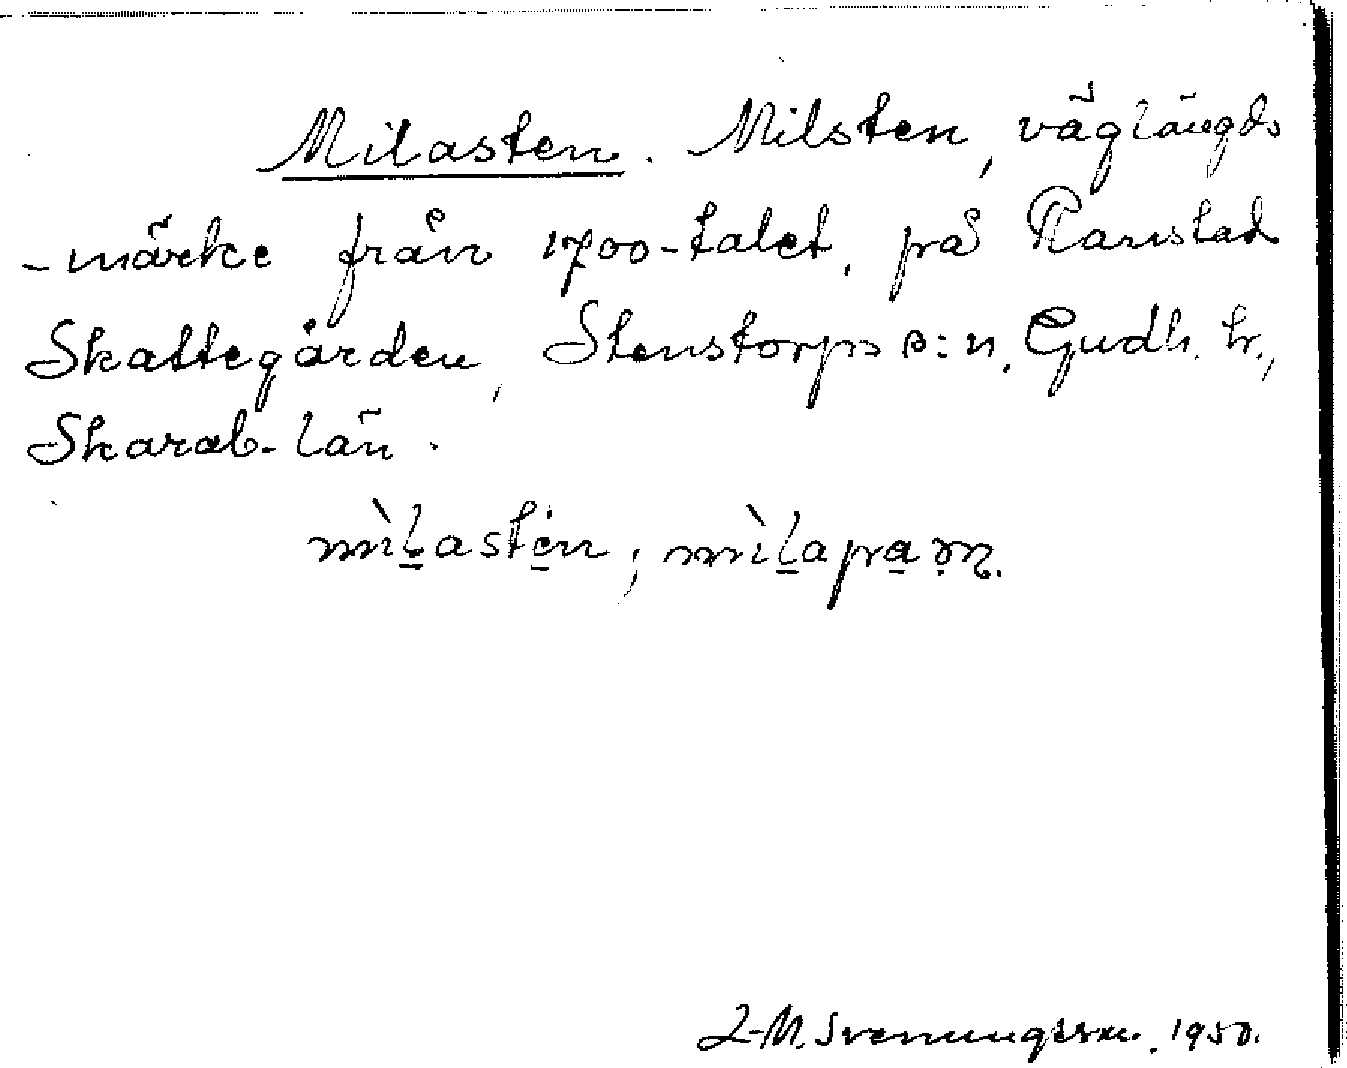 Milasten. Milsten, väglängds
-märke från 1700-talet, på Ranstad
Skattegården, Stenstorps s:n, Gudh. hr.,
Skarab-län.
mìḻastẹn; mìḻapa
L-M. Svenungsson. 1950.